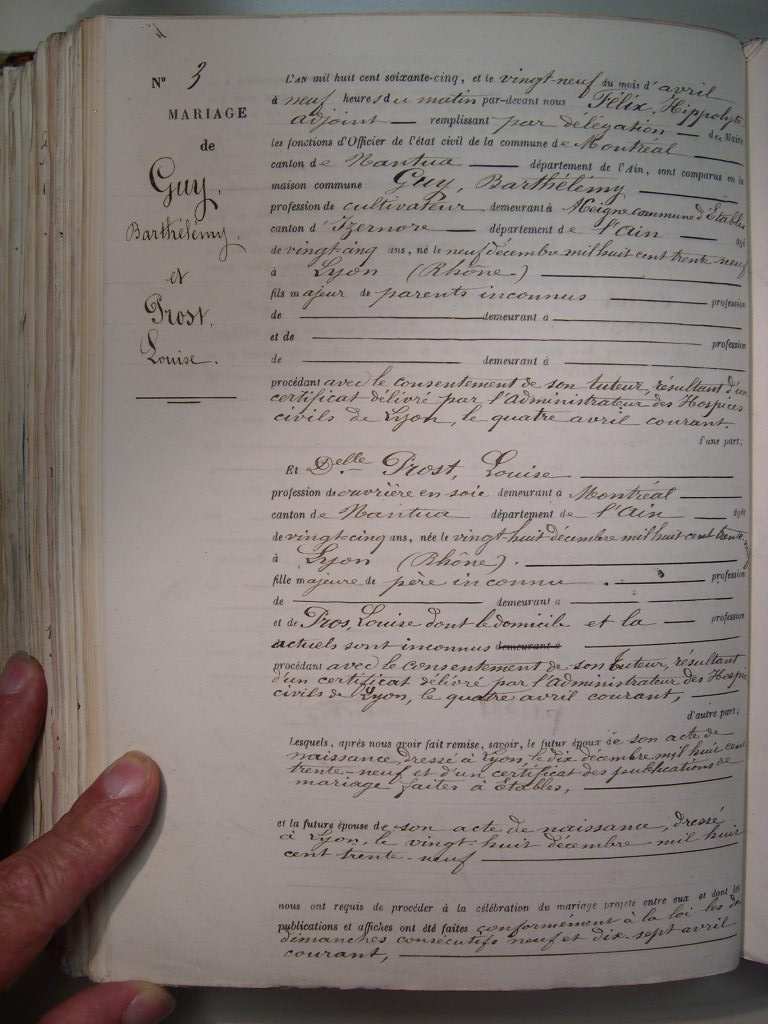 N° 3
MARIAGE
de
Guy,
Barthélémy.
et
Prost,
Louise.
L'AN mil huit cent soixante-cinq, et le vingt-neuf du mois d'avril
à neuf heures du matin par-devant nous Félix, Hippolyte
adjoint — remplissant par délégation — du Maire
les fonctions d'Officier de l'état civil de la commune de Montréal
canton de Nantua — département de l'Ain, sont comparus en la
maison commune Guy, Barthélémy
profession de cultivateur demeurant à Meigne commune d'Etables
canton d'Izernore — département de l'ain âgé
de vingt-cinq ans, né le neuf décembre mil huit cent trente-neuf
à Lyon (Rhône)
fils majeur de parents inconnus — profession
de — demeurant à
et de — profession
de — demeurant à
procédant avec le consentement de son tuteur, résultant d'un
certificat délivré par l'Administrateur des Hospices
civils de Lyon, le quatre avril courant.
d'une part;
Et Delle Prost, Louise
profession de ouvrière en soie demeurant à Montréal
canton de Nantua département de l'Ain âgée
de vingt-cinq ans, née le vingt-huit décembre mil huit cent trente
à Lyon (Rhône).
fille majeure de père inconnu — profession
de — demeurant à
et de Pros, Louise dont le domicile et la — profession
actuels sont inconnus demeurant à
procédant avec le consentement de son tuteur, résultant
d'un certificat délivré par l'Administrateur des Hospices
civils de Lyon, le quatre avril courant,
d'autre part;
Lesquels, après nous avoir fait remise, savoir, le futur époux de son acte de
naissance, dressé à Lyon, le dix décembre mil huit cent
trente-neuf et d'un certificat des publications de
mariage faites à Étables,
et la future épouse de son acte de naissance, dressé
à Lyon, le vingt-huit décembre mil huit
cent trente-neuf
nous ont requis de procéder à la célébration du mariage projeté entre eux et dont les
publications et affiches ont été faites conformément à la loi les
dimanches consécutifs neuf et dix-sept avril
courant,